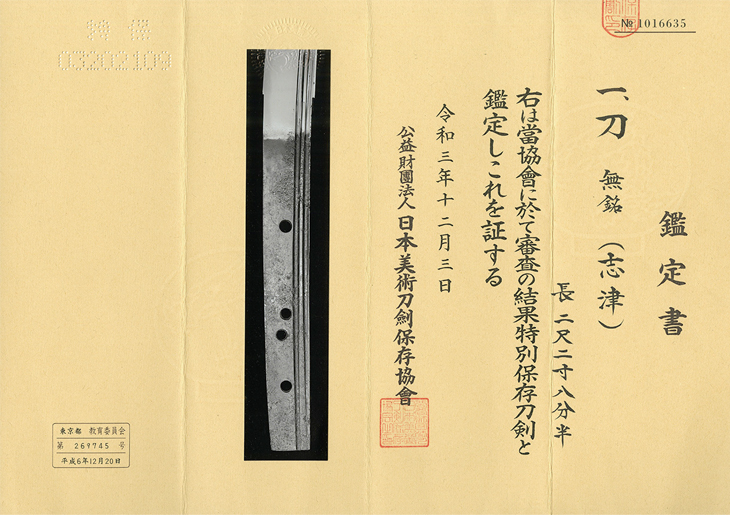 № 1016635
鑑定書
一、刀 無銘(志津)
長 二尺二寸八分半
右は當協會に於て審査の結果特別保存刀剣と
鑑定しこれを証する
令和三年十二月三日
公益財團法人 日本美術刀劍保存協會
特保
03202109
東京都 教育委員会
第 269745 号
平成6年12月20日